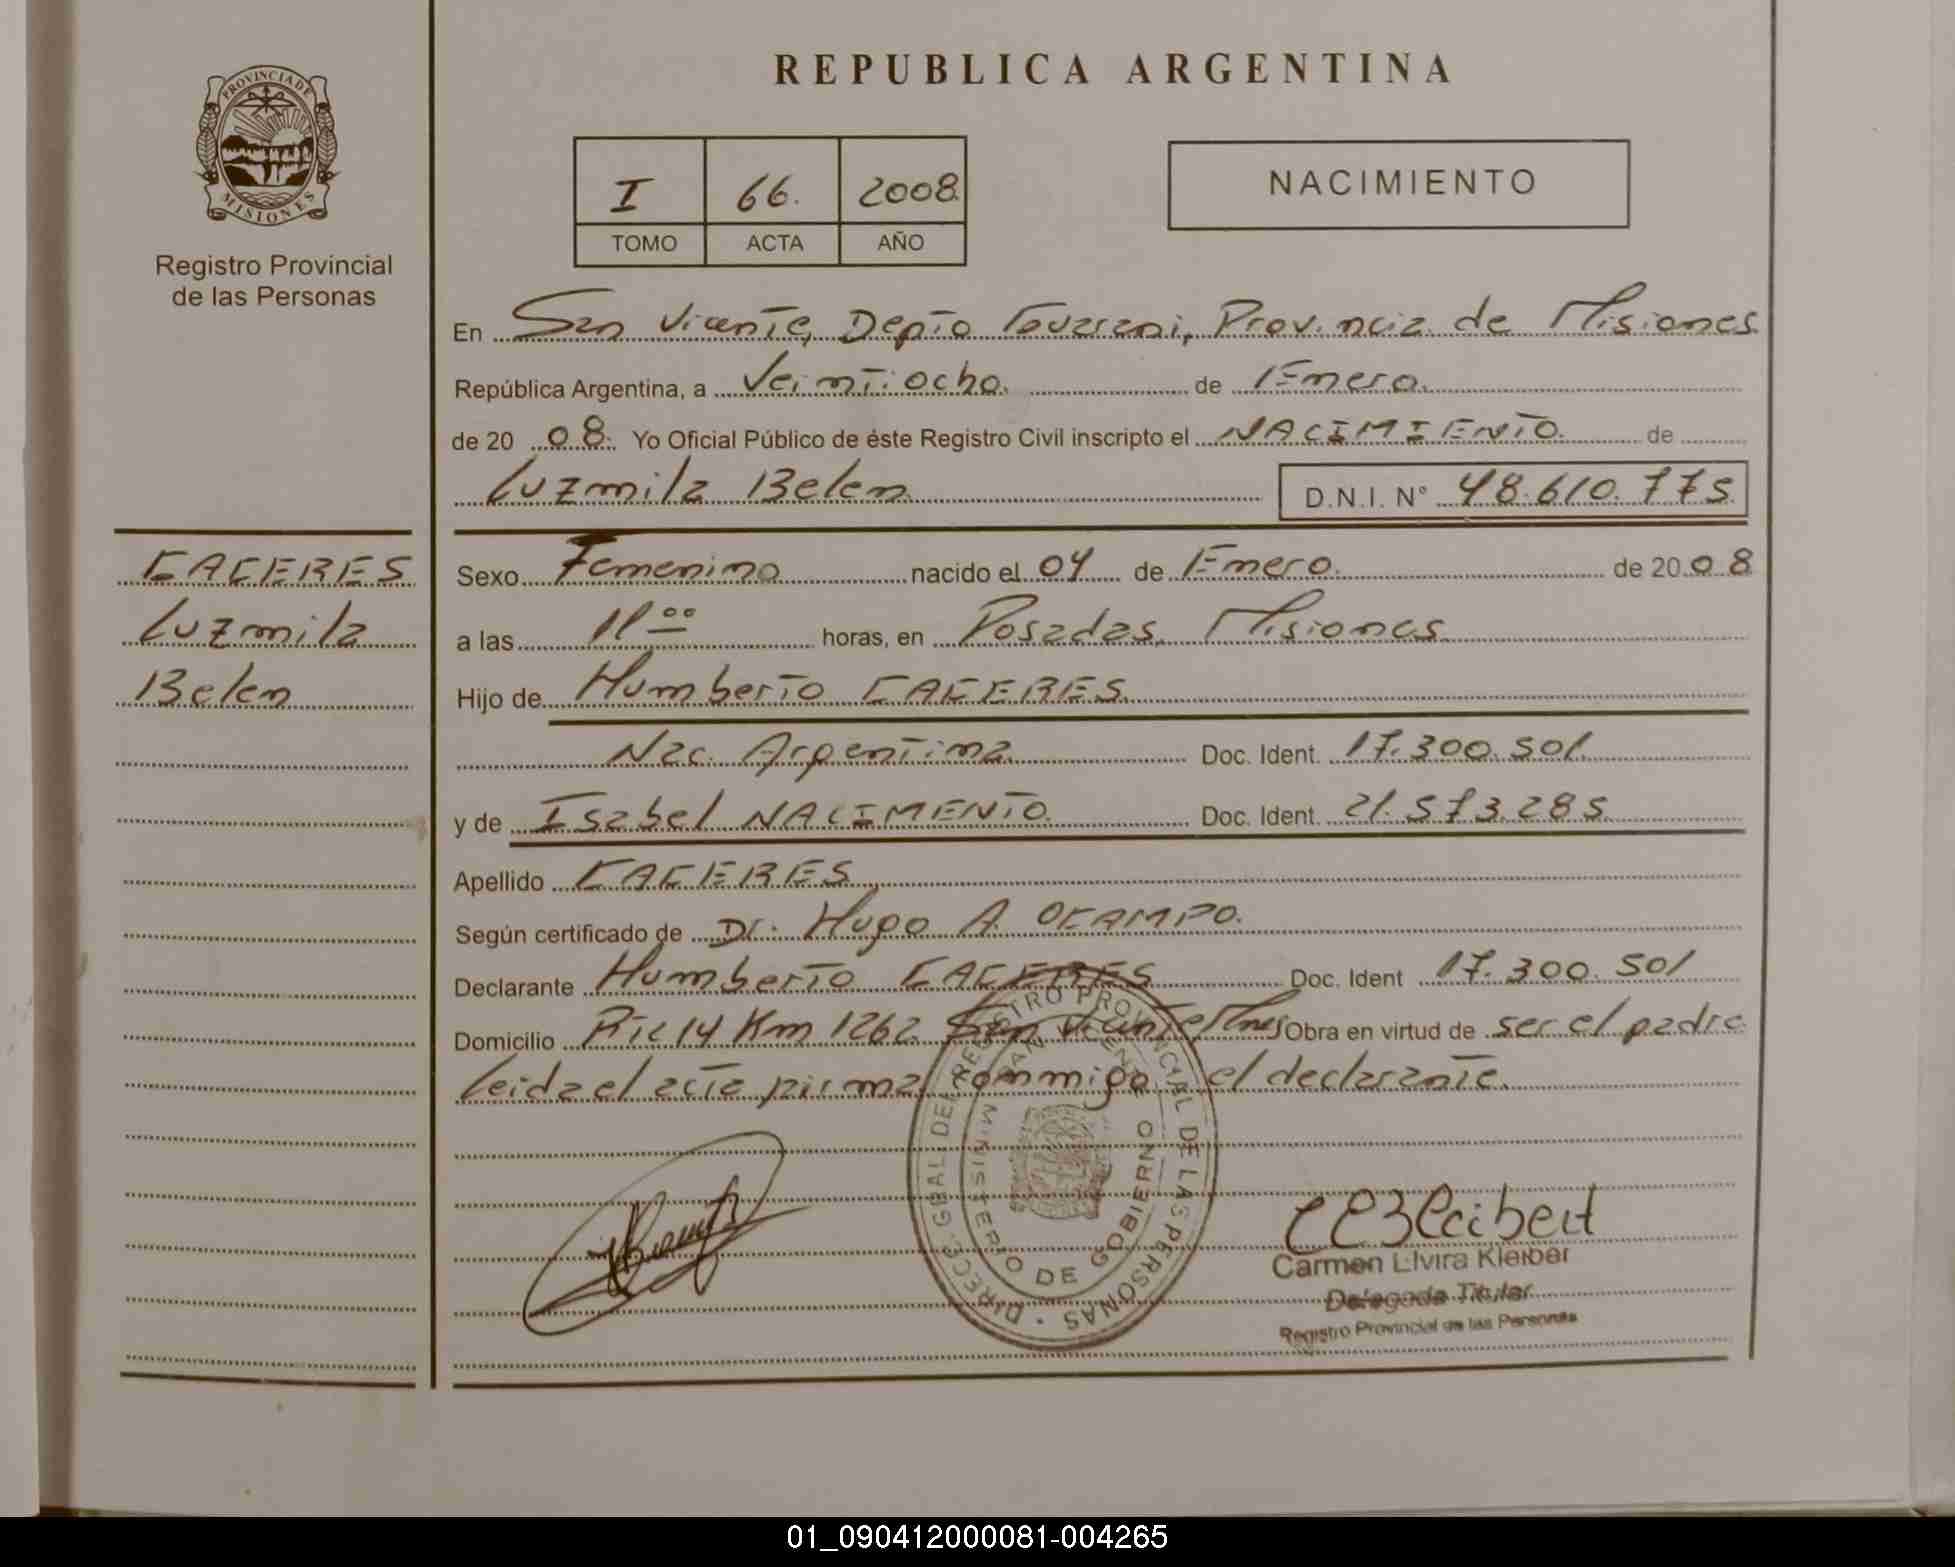 REPUBLICA ARGENTINA
PROVINCIA DE
MISIONES
Registro Provincial
de las Personas
I 66. 2008.
TOMO ACTA AÑO
NACIMIENTO
En San Vicente, Depto Guarani, Provincia de Misiones
República Argentina, a Veintiocho. de Enero.
de 20 08. Yo Oficial Público de éste Registro Civil inscripto el NACIMIENTO. de
Luzmila Belen D.N.I. N° 48.610.775
CACERES
Luzmila
Belen
Sexo Femenino nacido el 04 de Enero. de 2008
a las 11°° horas, en Posadas, Misiones
Hijo de Humberto CACERES.
Nac. Argentina. Doc. Ident. 17.300.501.
y de Isabel NACIMENTO. Doc. Ident. 21.573.285.
Apellido CACERES
Según certificado de Dr. Hugo A. OCAMPO.
Declarante Humberto CACERES Doc. Ident 17.300.501
Domicilio Rtc 14 Km 1262 San Vicente Mnes Obra en virtud de ser el padre
Leida el acta firma conmigo el declarante.
DIREC. GRAL DEL REGISTRO PROVINCIAL DE LAS PERSONAS
MINISTERIO DE GOBIERNO
SAN VICENTE
Carmen Elvira Kleiber
Delegada Titular
Registro Provincial de las Personas
01_090412000081-004265